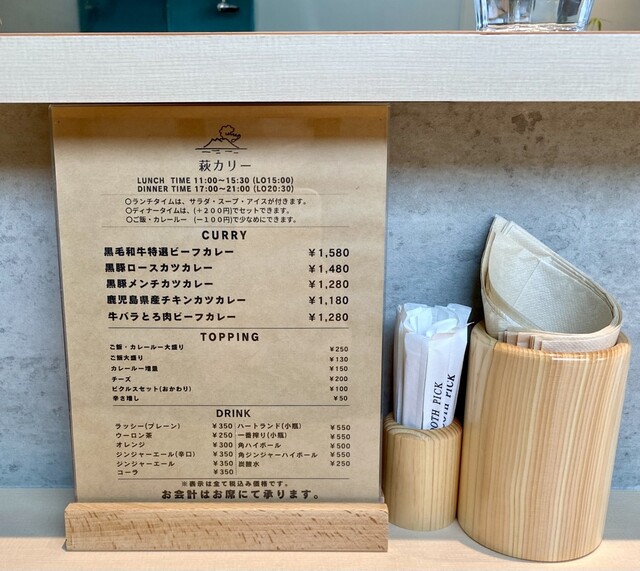 萩カリー
LUNCH TIME 11:00～15:30 (LO15:00)
DINNER TIME 17:00～21:00 (LO20:30)
〇ランチタイムは、サラダ・スープ・アイスが付きます。
〇ディナータイムは、(＋２００円)でセットできます。
〇ご飯・カレールー （－１００円)で少なめにできます。
CURRY
黒毛和牛特選ビーフカレー ￥1,580
黒豚ロースカツカレー ￥1,480
黒豚メンチカツカレー ￥1,280
鹿児島県産チキンカツカレー ￥1,180
牛バラとろ肉ビーフカレー ￥1,280
TOPPING
ご飯・カレールー大盛り ￥250
ご飯大盛り ￥130
カレールー増量 ￥150
チーズ ￥200
ピクルスセット(おかわり) ￥100
辛さ増し ￥50
DRINK
ラッシー(プレーン) ￥350 ハートランド(小瓶) ￥550
ウーロン茶 ￥250 一番搾り(小瓶) ￥550
オレンジ ￥300 角ハイボール ￥500
ジンジャーエール(辛口) ￥350 角ジンジャーハイボール ￥550
ジンジャーエール ￥350 炭酸水 ￥250
コーラ ￥350
※表示は全て税込み価格です。
お会計はお席にて承ります。
OOTH PICK
OTH PICK